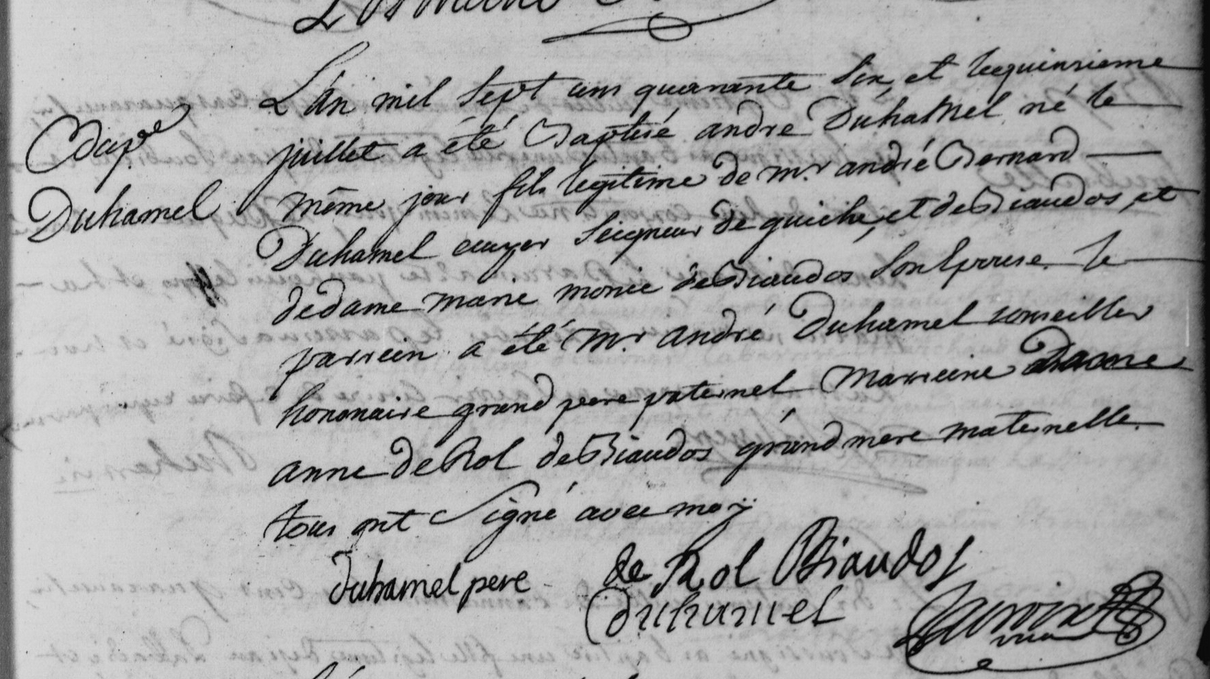 Bap.e
Duhamel
L'an mil sept cens quarante six, et le quinsieme
juillet a été Baptisé andré Duhamel né le
même jour fils legitime de m.r andré Bernard
Duhamel ecuyer seigneur de guiche, et de Biaudos, et
de dame marie de Biaudos son epouse. le
parrein a été m.r andré Duhamel conseiller
honoraire grand pere paternel Marreine Dame
anne de Rol de Biaudos grand mere maternelle.
tous ont signé avec moy
Duhamel pere de Rol Biaudos
Duhamel